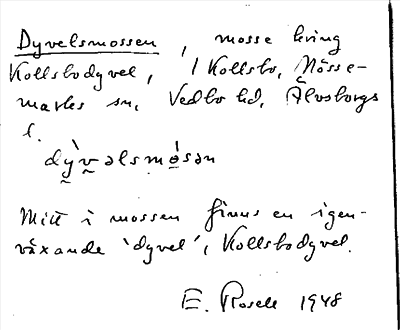 Dyvelsmossen, mosse kring
Kollsbodyvel, i Kollsbo, Nösse-
marks sn, Vedbo hd, Älvsborgs
l.
dỳvəlsmósən
Mitt i mossen finns en igen-
växande 'dyvel', Kollsbodyvel.
E. Rosell 1948